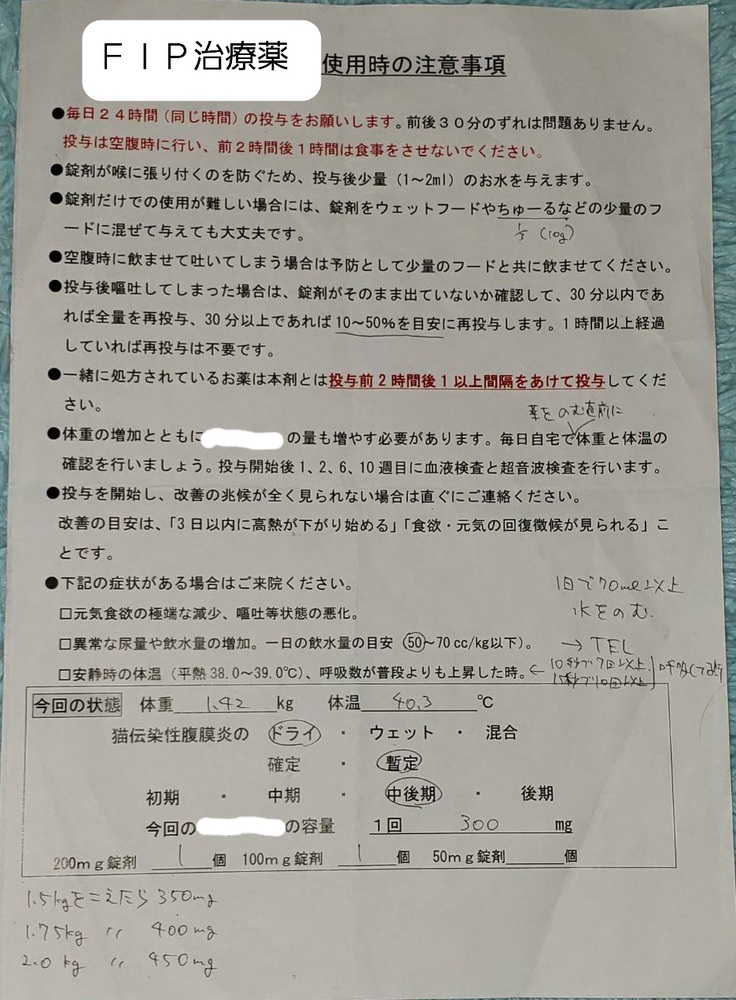 ＦＩＰ治療薬 使用時の注意事項
●毎日２４時間（同じ時間）の投与をお願いします。前後３０分のずれは問題ありません。
投与は空腹時に行い、前２時間後１時間は食事をさせないでください。
●錠剤が喉に張り付くのを防ぐため、投与後少量（1～2ml）のお水を与えます。
●錠剤だけでの使用が難しい場合には、錠剤をウェットフードやちゅーるなどの少量のフ
ードに混ぜて与えても大丈夫です。
(10g)
●空腹時に飲ませて吐いてしまう場合は予防として少量のフードと共に飲ませてください。
●投与後嘔吐してしまった場合は、錠剤がそのまま出ていないか確認して、30 分以内であ
れば全量を再投与、30 分以上であれば 10～50％を目安に再投与します。１時間以上経過
していれば再投与は不要です。
●一緒に処方されているお薬は本剤とは投与前２時間後１以上間隔をあけて投与してくだ
さい。
薬をのむ直前に
●体重の増加とともに の量も増やす必要があります。毎日自宅で体重と体温の
確認を行いましょう。投与開始後 1、2、6、10 週目に血液検査と超音波検査を行います。
●投与を開始し、改善の兆候が全く見られない場合は直ぐにご連絡ください。
改善の目安は、「3 日以内に高熱が下がり始める」「食欲・元気の回復徴候が見られる」こ
とです。
●下記の症状がある場合はご来院ください。
1日で70ml以上
水をのむ.
□元気食欲の極端な減少、嘔吐等状態の悪化。
□異常な尿量や飲水量の増加。一日の飲水量の目安 50～70 cc/kg以下）。 → TEL
□安静時の体温（平熱 38.0～39.0℃）、呼吸数が普段よりも上昇した時。← 10秒で7回以上
15秒で10回以上
今回の状態 体重 1.42 kg 体温 40.3 ℃
猫伝染性腹膜炎の ドライ ・ ウェット ・ 混合
確定 ・ 暫定
初期 ・ 中期 ・ 中後期 ・ 後期
今回の の容量 1回 300 mg
200ｍｇ錠剤 1 個 100ｍｇ錠剤 1 個 50ｍｇ錠剤 個
1.5kgをこえたら 350mg
1.75kg 〃 400mg
2.0 kg 〃 450mg